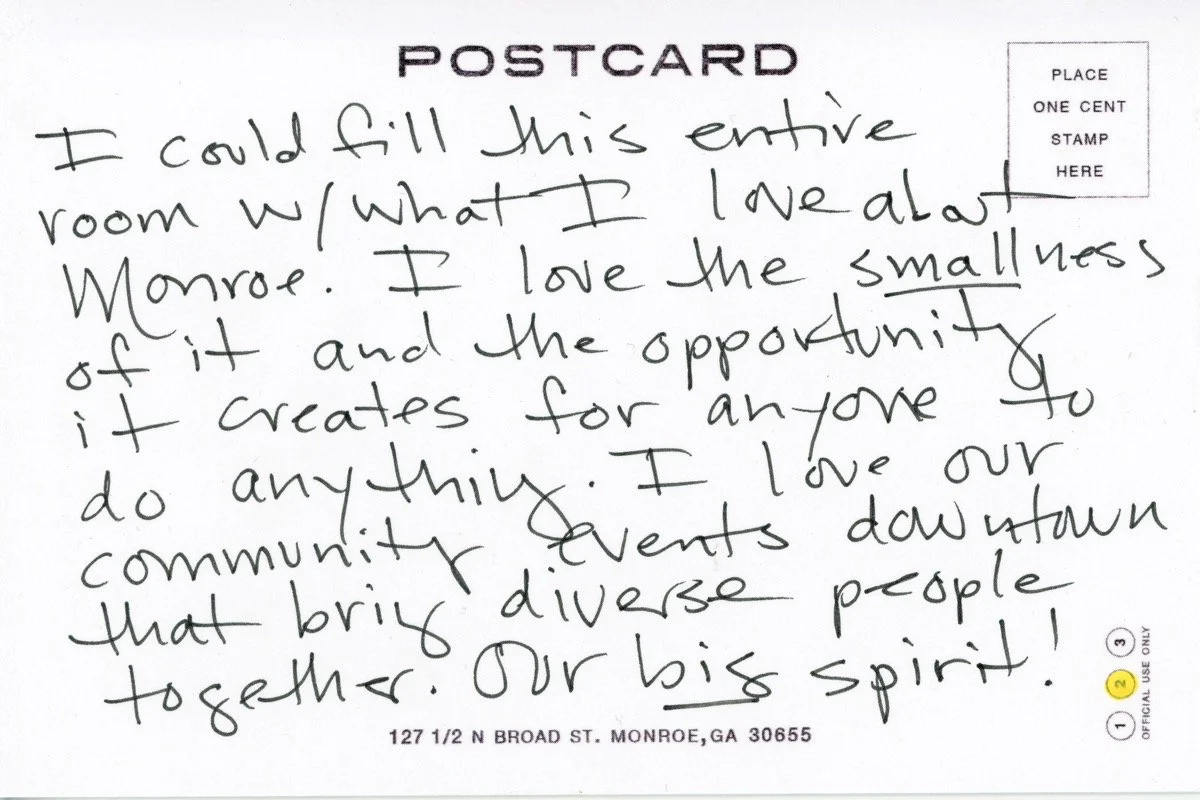 POSTCARD
PLACE
ONE CENT
STAMP
HERE
I could fill this entire
room w/ what I love about
Monroe. I love the smallness
of it and the opportunity
it creates for anyone to
do anything. I love our
community events downtown
that bring diverse people
together. Our big spirit!
127 1/2 N BROAD ST. MONROE, GA 30655
1 2 3
OFFICIAL USE ONLY